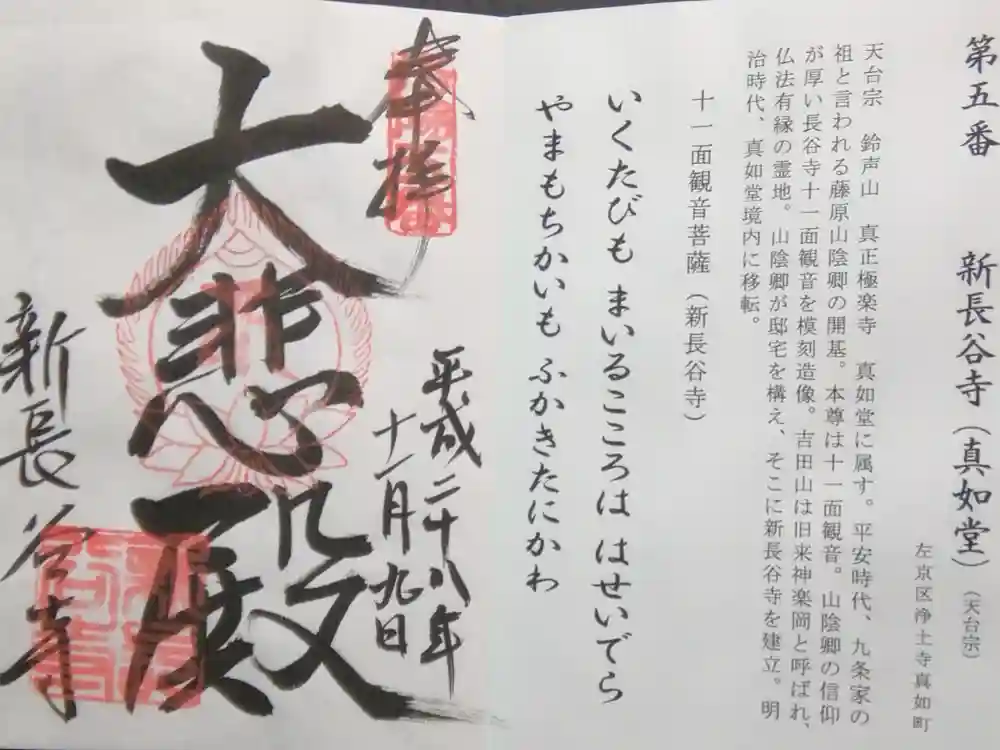 第五番 新長谷寺(真如堂)(天台宗)
左京区浄土寺真如町
天台宗 鈴声山 真正極楽寺 真如堂に属す。平安時代、九条家の
祖と言われる藤原山陰卿の開基。本尊は十一面観音。山陰卿の信仰
が厚い長谷寺十一面観音を模刻造像。吉田山は旧来神楽岡と呼ばれ、
仏法有縁の霊地。山陰卿が邸宅を構え、そこに新長谷寺を建立。明
治時代、真如堂境内に移転。
十一面観音菩薩(新長谷寺)
いくたびも まいるこころは はせいでら
やまもちかいも ふかきたにかわ
奉拝
平成二十八年
十一月九日
大悲殿
新長谷寺